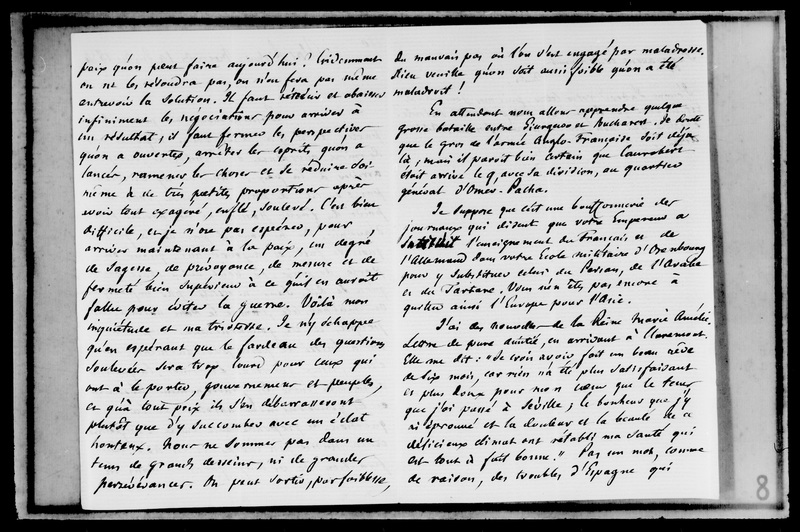 paix qu'on peut faire aujourd'hui ? Evidemment
on ne les résoudra pas, on n'en fera pas même
entrevoir la solution. Il faut rétrécir et abaisser
infiniment les négociations pour arriver à
un résultat ; il faut fermer les perspectives
qu'on a ouvertes, arrêter les esprits qu'on a
lancés, ramener les choses et se réduire soi
même à de très petites proportions après
avoir tout exagéré, enflé, soulevé. C'est bien
difficile, et je n'ose pas espérer, pour
arriver maintenant à la paix, un degré
de sagesse, de prévoyance, de mesure et de
fermeté bien supérieur à ce qu'il en auroit
fallu pour éviter la guerre. Voilà mon
inquiétude et ma tristesse. Je n'y échappe
qu'en espérant que le fardeau des questions
soulevées sera trop lourd pour ceux qui
ont à le porter, gouvernemens et peuples,
et qu'à tout prix ils s'en débarrasseront
plutôt que d'y succomber avec un éclat
honteux. Nous ne sommes pas dans un
tems de grands desseins, ni de grandes
persévérances. On peut sortir, par faiblesse,
du mauvais pas où l'on s'est engagé par maladresse.
Dieu veuille qu'on soit aussi foible qu'on a été
maladroit !
En attendant nous allons apprendre quelque
grosse bataille entre Giurgewo et Bucharest. Je doute
que le gros de l'armée Anglo-Française soit déjà
là ; mais il paroit bien certain que Canrobert
étoit arrivé le 9, avec sa division, au quartier
général d'Omer-Pacha.
Je suppose que c'est une bouffonnerie des
journaux qui disent que votre Empereur a
interdit l'enseignement du Français et de
l'Allemand dans votre Ecole militaire d'Orenbourg
pour y substituer celui du Persan, de l'Arabe
et du Tartare. Vous n'en êtes pas encore à
quitter ainsi l'Europe pour l'Asie.
J'ai des nouvelles de la Reine Marie Amélie.
Lettre de pure amitié, en arrivant à Claremont.
Elle me dit : "Je crois avoir fait un beau rêve
de six mois, car rien n'a été plus satisfaisant
et plus doux pour mon cœur que le tems
que j'ai passé à Séville ; le bonheur que j'y
ai éprouvé et la douceur et la beauté de ce
délicieux climat ont rétabli ma santé qui
est tout à fait bonne." Pas un mot, comme
de raison, des troubles d'Espagne qui
8